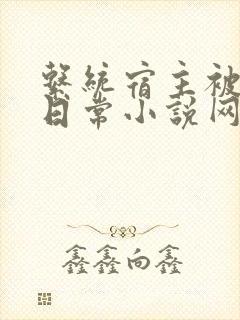 繫統宿主被
日常小說网
鑫鑫向鑫